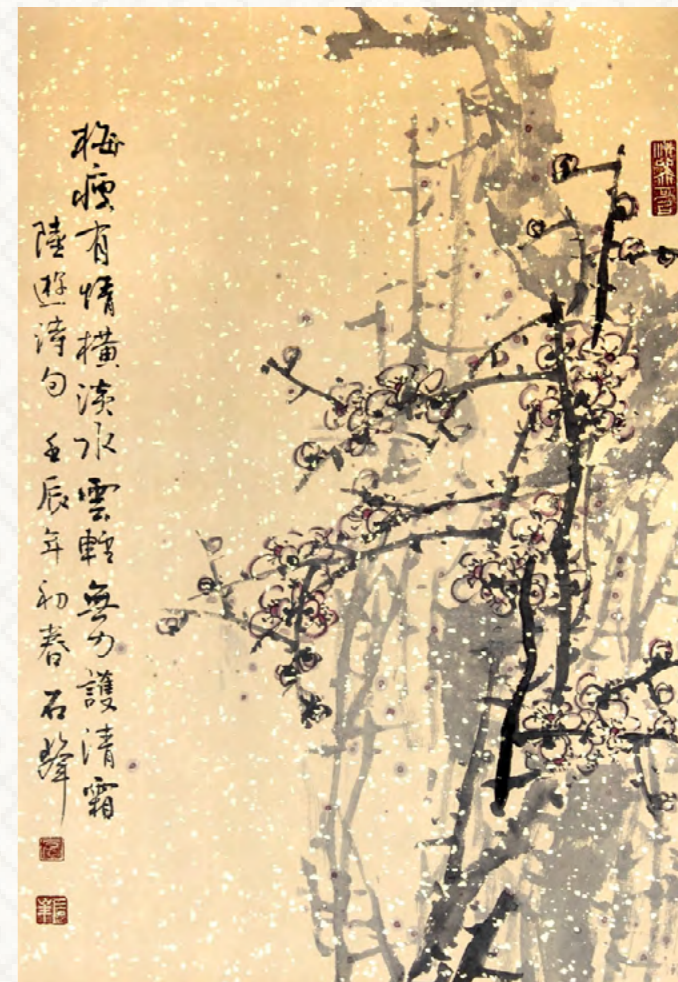 梅瘦有情橫淡水雲輕無力護清霜
陸遊詩句 壬辰年初春 石